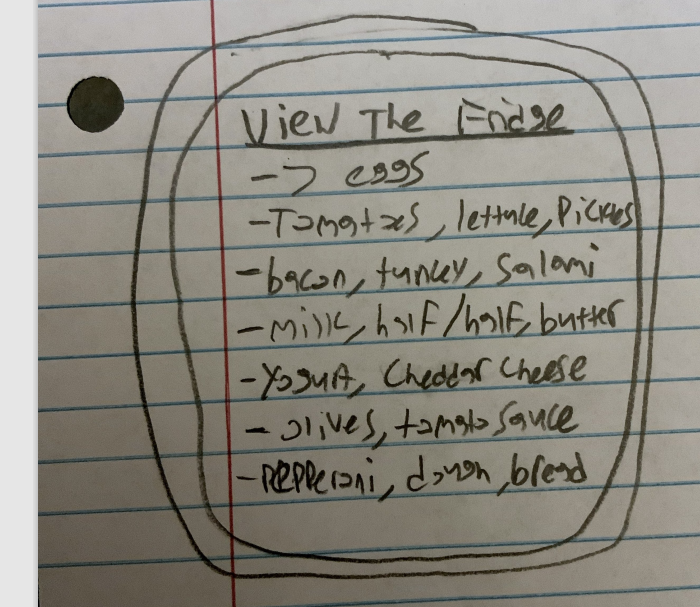 View The Fridge
-> eggs
-Tomatoes, lettuce, Pickles
-bacon, turkey, Salami
-Milk, half/half, butter
-Yogurt, Cheddar Cheese
-olives, tomato sauce
-Pepperoni, dough, bread